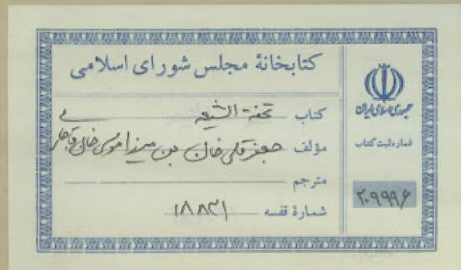 کتابخانهٔ مجلس شورای اسلامی
کتاب تحفة الشیعه
مؤلف جعفرقلی خان بن میرزا موسی خان قاجار
مترجم
شمارهٔ قفسه ۱۸۸۳۱
جمهوری اسلامی ایران
شماره ثبت کتاب
۲۰۹۹۹۶